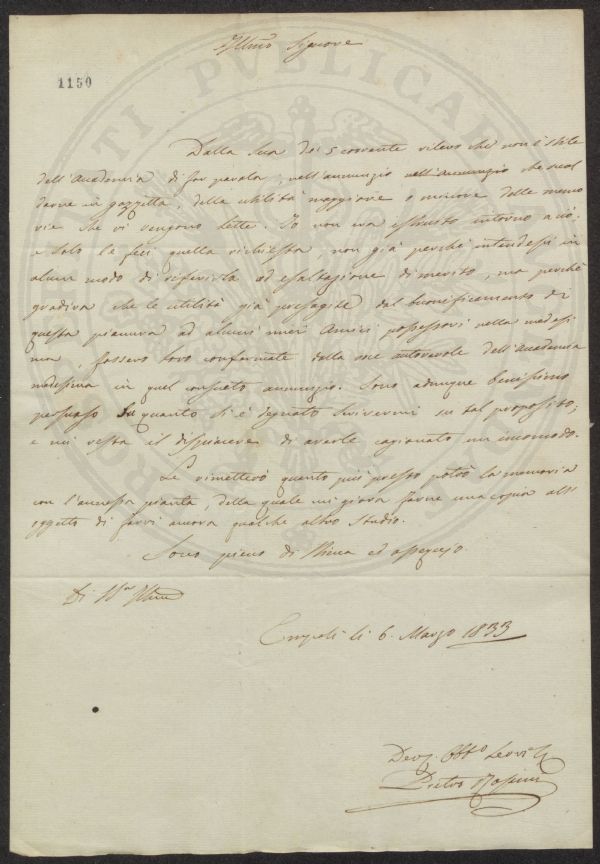 Illmo Signore
1150
Dalla Sua dei 5 corrente rilevo che non è stile
dell'Accademia di far parola, nell'annunzio nell'Annunzio che suol
darne in gazzetta, della utilità maggiore o minore delle memo
rie che vi vengono lette. Io non era istruito intorno a ciò,
e solo le feci quella richiesta, non già perchè intendessi in
alcun modo di riferirla ad esaltazione di merito, ma perchè
gradiva che le utilità già presagite dal buonificamento di
questa pianura ad alcuni miei Amici possessori nella medesi
ma, fossero loro confermate dalla voce autorevole dell'Accademia
medesima in quel consueto annunzio. Sono adunque benissimo
persuaso di quanto si è degnato scrivermi su tal proposito;
e mi resta il dispiacere di averle cagionato un incomodo.
Le rimetterò quanto più presto potrò la memoria
con l'annessa pianta, della quale mi giova farne una copia all'
oggetto di farvi ancora qualche altro studio.
Sono pieno di stima ed ossequio.
Di V.S. Illma
Empoli li 6. Marzo 1833
Dev. Obbo Servire
Pietro